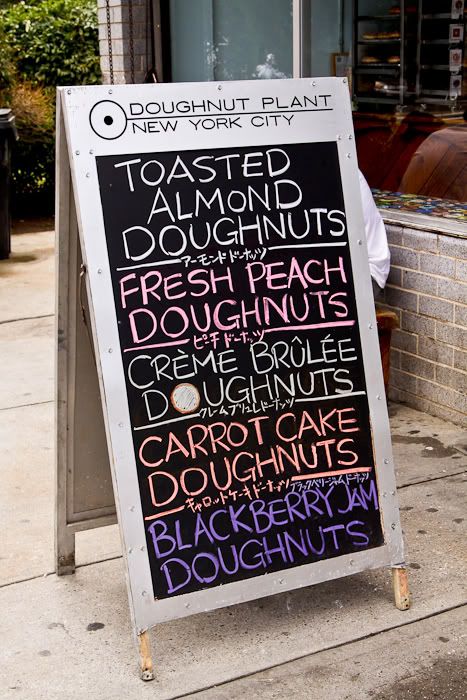 DOUGHNUT PLANT
NEW YORK CITY
TOASTED
ALMOND
DOUGHNUTS
アーモンドドーナッツ
FRESH PEACH
DOUGHNUTS
ピーチドーナッツ
CRÈME BRÛLÉE
DOUGHNUTS
クレームブリュレドーナッツ
CARROT CAKE
DOUGHNUTS
キャロットケーキドーナッツ ブラックベリージャムドーナッツ
BLACKBERRY JAM
DOUGHNUTS